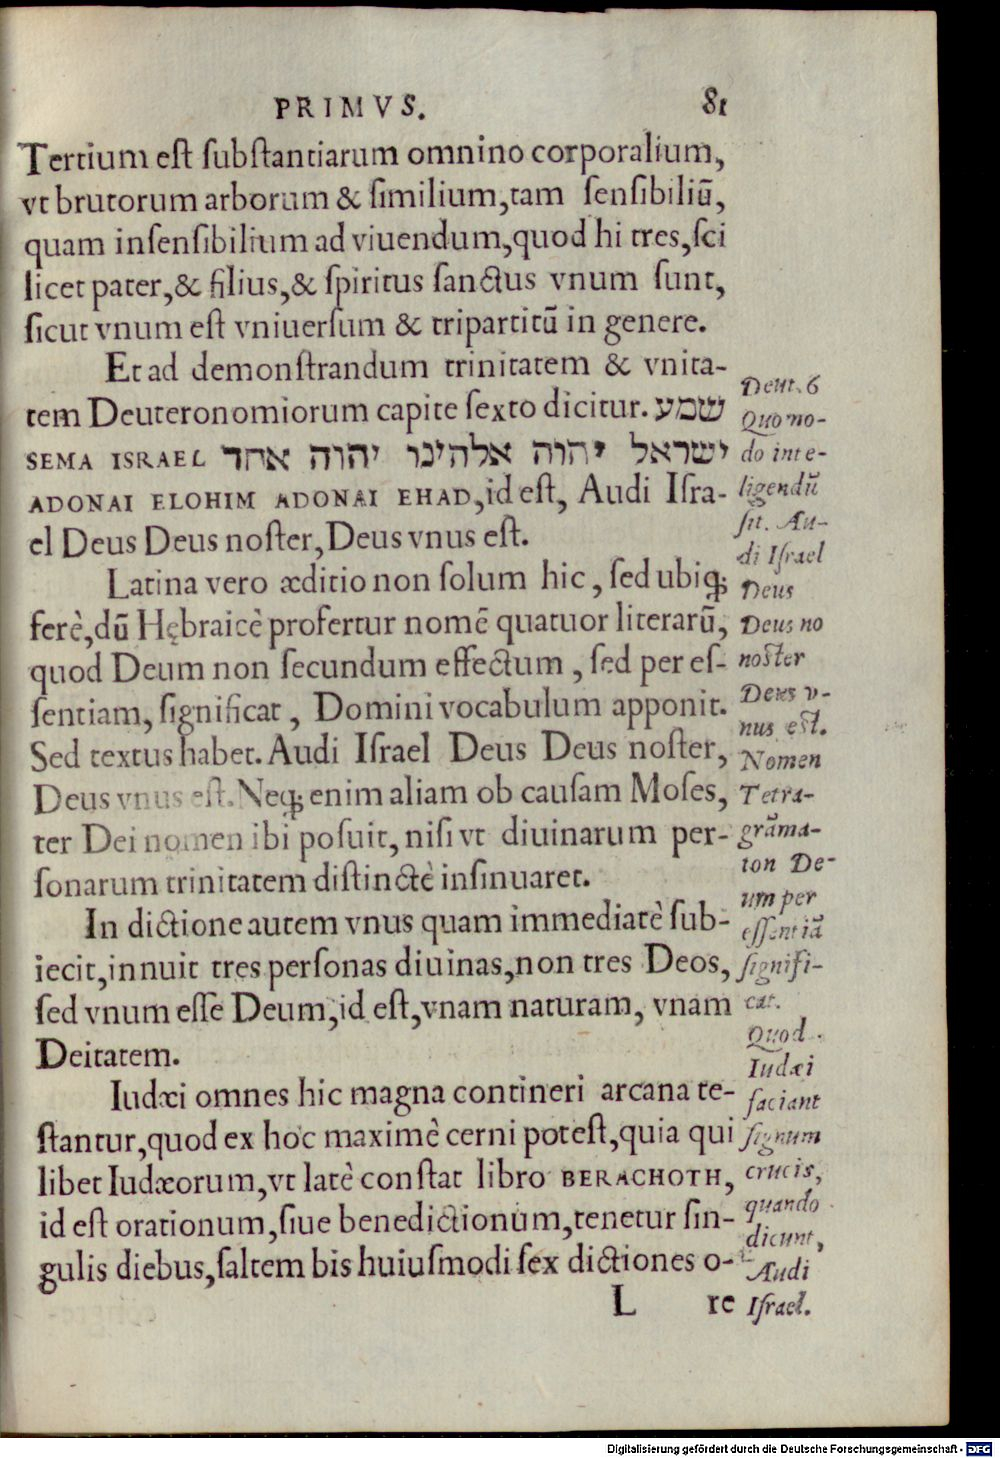 PRIMVS. 81
Tertium est substantiarum omnino corporalium,
vt brutorum arborum & similium, tam sensibiliū,
quam insensibilium ad viuendum, quod hi tres, sci
licet pater, & filius, & spiritus sanctus vnum sunt,
sicut vnum est vniuersum & tripartitū in genere.
Et ad demonstrandum trinitatem & vnita-
tem Deuteronomiorum capite sexto dicitur. שמע
SEMA ISRAEL ישראל יהוה אלהינו יהוה אחד
ADONAI ELOHIM ADONAI EHAD, id est, Audi Isra-
el Deus Deus noster, Deus vnus est.
Latina vero æditio non solum hic, sed ubiq;
ferè, dū Hębraicè profertur nomē quatuor literarū,
quod Deum non secundum effectum, sed per es-
sentiam, significat, Domini vocabulum apponit.
Sed textus habet. Audi Israel Deus Deus noster,
Deus vnus est. Neq; enim aliam ob causam Moses,
ter Dei nomen ibi posuit, nisi vt diuinarum per-
sonarum trinitatem distinctè insinuaret.
In dictione autem vnus quam immediatè sub-
iecit, innuit tres personas diuinas, non tres Deos,
sed vnum esse Deum, id est, vnam naturam, vnam
Deitatem.
Iudæi omnes hic magna contineri arcana te-
stantur, quod ex hoc maximè cerni potest, quia qui
libet Iudæorum, vt latè constat libro BERACHOTH,
id est orationum, siue benedictionum, tenetur sin-
gulis diebus, saltem bis huiusmodi sex dictiones o-
L re
Deut. 6
Quo no-
do inte-
ligendū
sit. Au-
di Israel
Deus
Deus no
noster
Deus v-
nus est.
Nomen
Tetra-
grāma-
ton De-
um per
essentiā
signifi-
cat.
Quod
Iudæi
faciant
signum
crucis,
quando
dicunt,
Audi
Israel.
Digitalisierung gefördert durch die Deutsche Forschungsgemeinschaft - DFG